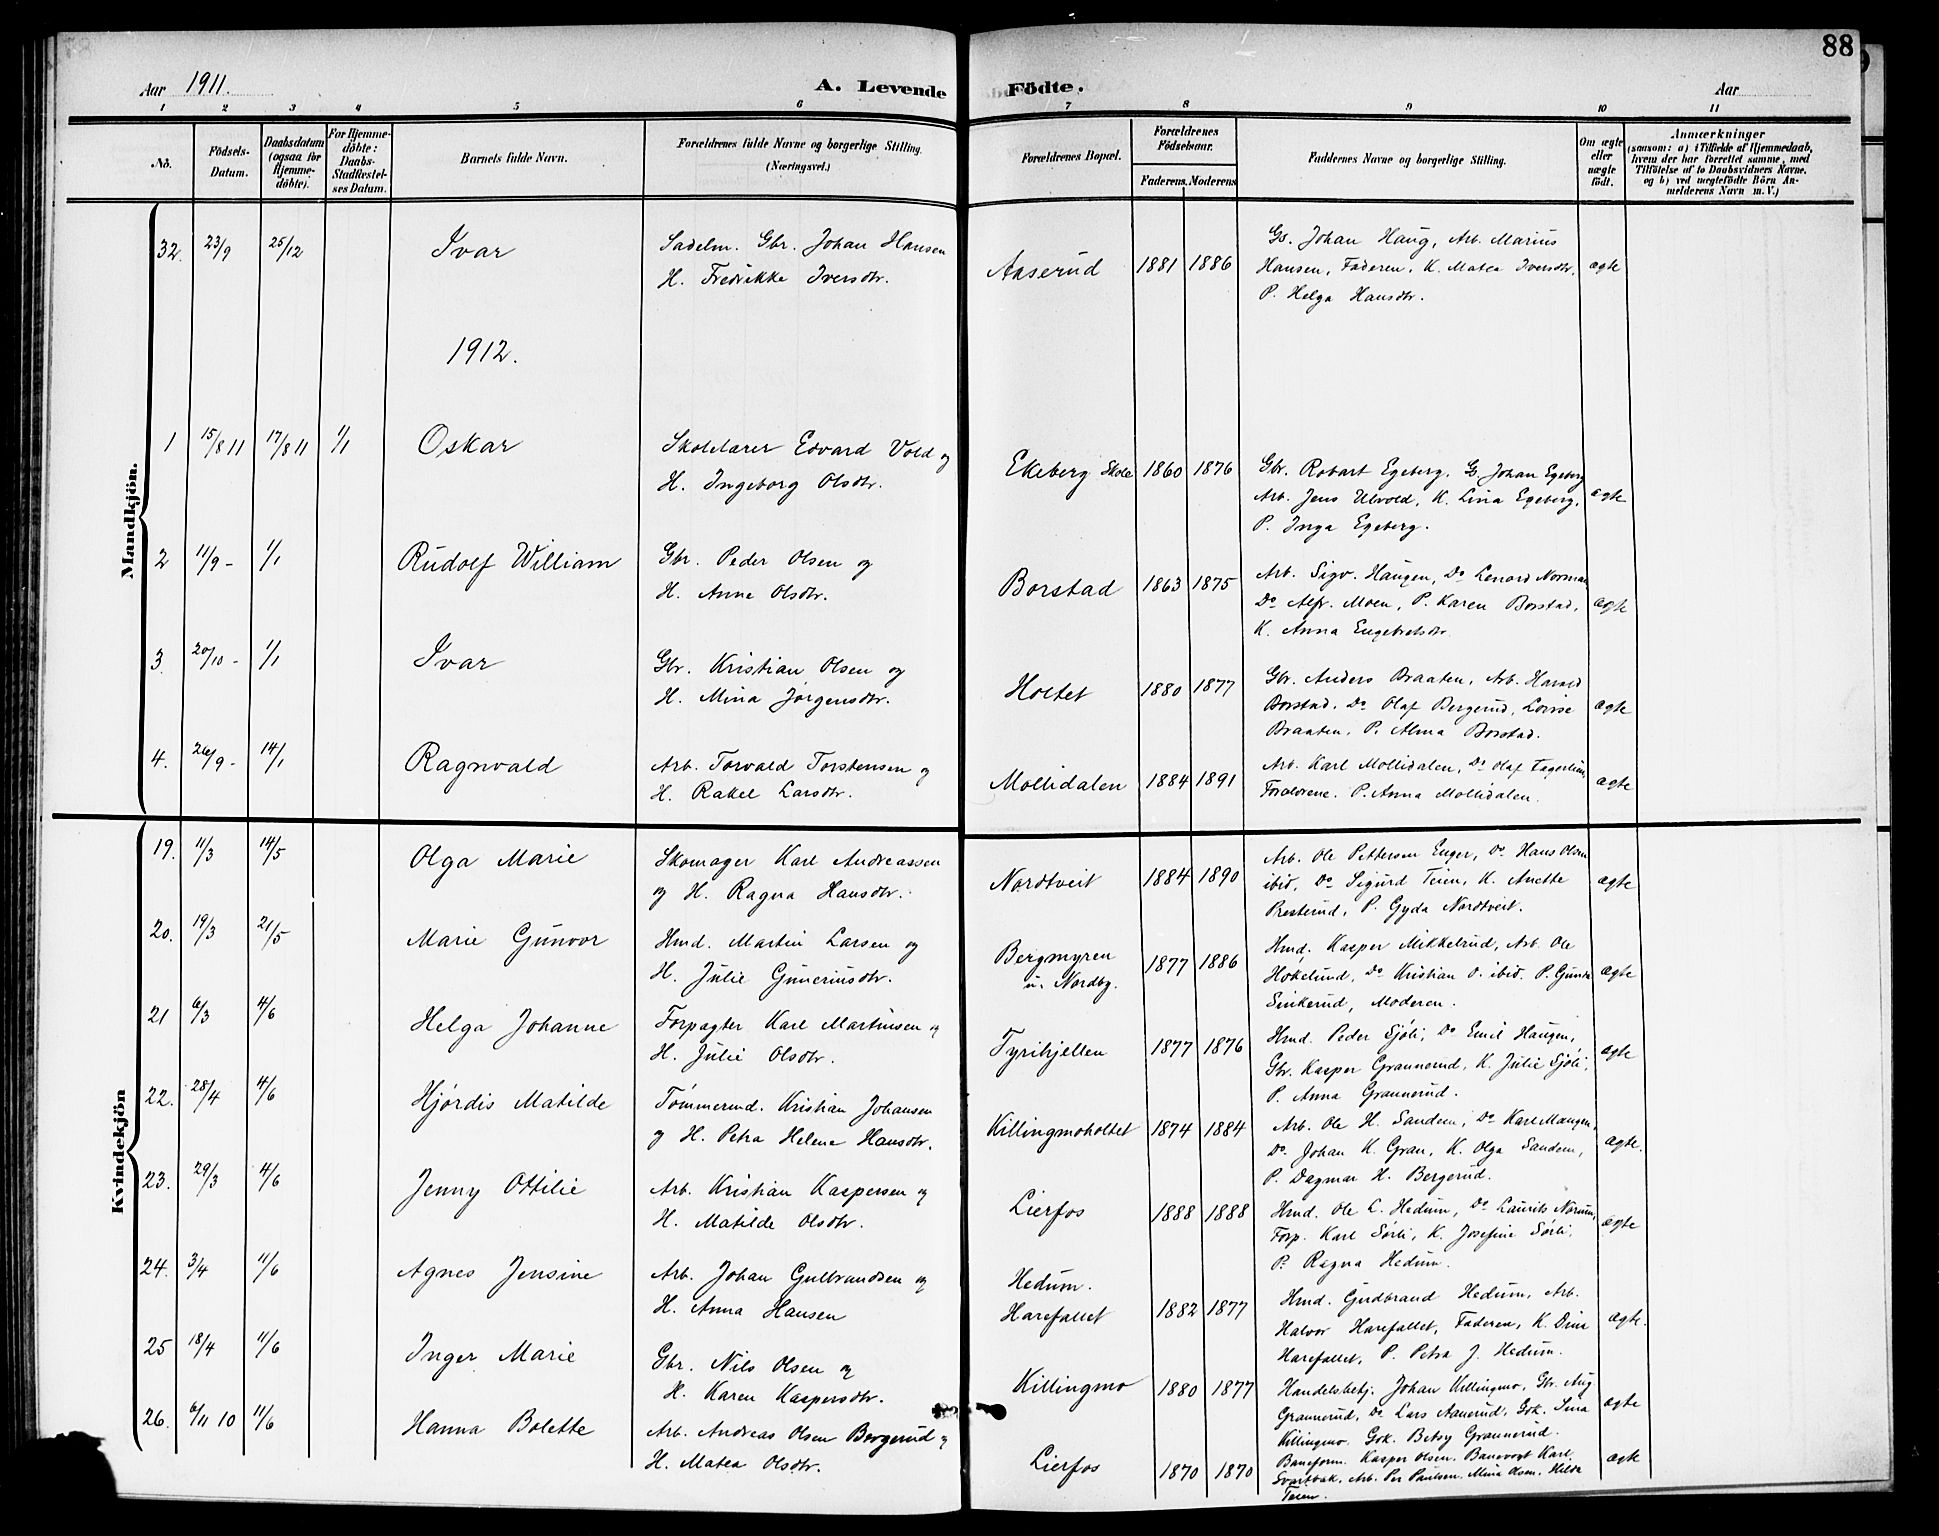 88
Aar 1911.
A. Levende Födte.
Aar
1 2 3 4 5 6 7 8 9 10 11
No.
Födsels-
Datum.
Daabsdatum
(ogsaa for
Hjemme-
döbte).
For Hjemme-
döbte:
Daabs-
Stadfæstel-
ses Datum.
Barnets fulde Navn.
Forældrenes fulde Navne og borgerlige Stilling.
(Næringsvei.)
Forældrenes Bopæl.
Forældrenes
Födselsaar.
Faderens. Moderens
Faddernes Navne og borgerlige Stilling.
Om ægte
eller
uægte
født.
Anmærkninger
(saasom: a) i Tilfælde af Hjemmedaab,
hvem der har forrettet samme, med
Tilföielse af to Daabsvidners Navne,
og b) ved uægtefödte Börn An-
melderens Navn m. V.)
Mandkjön.
32. 23/9 25/12 Ivar Sadelm. Gbr. Johan Hansen
H. Fredrikke Iversdtr.
Aaserud 1881 1886
Gs. Johan Haug, Arb. Marius
Hansen, Faderen, K. Matea Iversdtr.
P. Helga Hansdtr.
ægte
1912.
1 15/8 11 17/8 11 1/1 Oskar Skolelærer Edvard Vold og
H. Ingeborg Olsdtr.
Ekeberg Skole 1860 1876
Gbr. Robart Egeberg, Gs Johan Egeberg
Arb. Jens Ulvold, K. Lina Egeberg,
P. Inga Egeberg.
ægte
2 11/9 - 1/1 Rudolf William Gbr. Peder Olsen og
H. Anne Olsdtr.
Borstad 1863 1875
Arb. Sigv. Haugen, Do Lenard Norman
Do Alfr. Moen, P. Karen Borstad,
K. Anna Engebretsdtr.
ægte
3 20/10 - 1/1 Ivar Gbr. Kristian Olsen og
H. Mina Jørgensdtr.
Holtet 1880 1877
Gbr. Anders Braaten, Arb. Harald
Borstad, Do Olaf Bergerud, Lovise
Braaten, P. Alma Borstad.
ægte
4. 26/9 - 14/1 Ragnvald Arb. Torvald Torstensen og
H. Rakel Larsdtr.
Mollidalen 1884 1891
Arb. Karl Mollidalen, Do Olaf Fagerlund,
Forældrene. P. Anna Mollidalen.
ægte
Kvindekjön
19. 11/3 14/5 Olga Marie Skomager Karl Andreassen
og H. Ragna Hansdtr.
Nordtveit 1884 1890
Arb. Ole Pettersen Enger, Do Hans Olsen
ibid, Do Sigurd Teien, K. Anette
Presterud, P. Gyda Nordtveit.
ægte
20. 19/3 21/5 Marie Gunvor Hmd. Martin Larsen og
H. Julie Guneriusdtr.
Bergmyren
u. Nordby. 1877 1886
Hmd. Kasper Mikkelrud, Arb. Ole
Hokelund, Do Kristian O. ibid. P. Gunda
Sinkerud, Moderen.
ægte
21 6/3 4/6 Helga Johanne Forpagter Karl Martinsen og
H. Julie Olsdtr.
Tyrihjellen 1877 1876
Hmd. Peder Sjöli, Do Emil Haugen,
Gbr. Kasper Grannerud, K. Julie Sjöli,
P. Anna Grannerud.
ægte
22. 28/4 4/6 Hjørdis Matilde Tømmermd. Kristian Johansen
og H. Petra Helene Hansdtr.
Killingmoholtet 1874 1884
Arb. Ole H. Sandem, Do Karl Maugen,
Do. Johan K. Gran, K. Olga Sandem,
P. Dagmar H. Bergerud.
ægte.
23. 29/3 4/6 Jenny Otilie Arb. Kristian Kaspersen og
H. Matilde Olsdtr.
Lierfos 1888 1888
Hmd. Ole L. Hedum, Do Laurits Norum,
Forp. Karl Sörli, K. Josefine Sörli,
P. Ragna Hedum.
ægte
24. 3/4 11/6 Agnes Jensine Arb. Johan Gulbrandsen og
H. Anna Hansen
Hedum.
Harefallet 1882 1877
Hmd. Gudbrand Hedum, Arb.
Halvor Harefallet, Faderen, K. Dina
Harefallet, P. Petra J. Hedum.
ægte.
25 18/4 11/6 Inger Marie Gbr. Nils Olsen og
H. Karen Kaspersdtr.
Killingmo 1880 1877
Handelsbetj. Johan Killingmo, Gbr. Aug
Grannerud, Do Lars Aanerud, Gbk. Lina
Killingmo. Gbk. Betsy Grannerud.
ægte
26. 6/11 10 11/6 Hanna Bolette Arb. Andreas Olsen Bergerud og
H. Matea Olsdtr.
Lierfos 1870 1870
Baneform. Kasper Olsen, Banevogt Karl
Svartbak, Arb. Per Paulsen, Mina Olsen, Hilda
Teien.
ægte